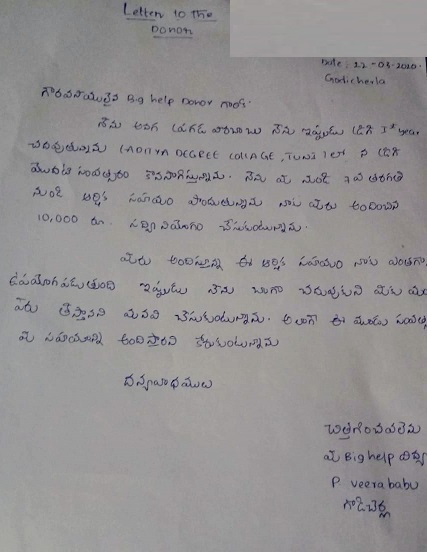 Letter to the
Donor
Date: 22-08-2020.
Godicherla
గౌరవనీయులైన Big help Donor గారికి.
నేను అనగా వీరబాబు నేను ఇప్పుడు డిగ్రీ Ist year
చదువుతున్నాను (ADITYA DEGREE COLLAGE, TUNI) లో. నే డిగ్రీ
మొదటి సంవత్సరం కొనసాగిస్తున్నాను. నేను మీ నుండి 7వ తరగతి
నుండి ఆర్థిక సహయం పొందుతున్నాను నాకు మీరు అందించిన
10,000 రూ. సద్వినియోగం చేసుకుంటున్నాను.
మీరు అందిస్తున్న ఈ ఆర్థిక సహయం నాకు ఎంతగా
ఉపయోగపడుతుంది ఇప్పుడు నేను బాగా చదువుకుని మీకు మంచి
పేరు తెస్తానని మనవి చేసుకుంటున్నాను. అలాగే ఈ మూడు సంవత్స
మీ సహయాన్ని అందిస్తారని కోరుకుంటున్నాను
ధన్యవాధములు
చిత్తగించవలెను
మీ Big help విద్యా
P veerababu
గొడిచెర్ల